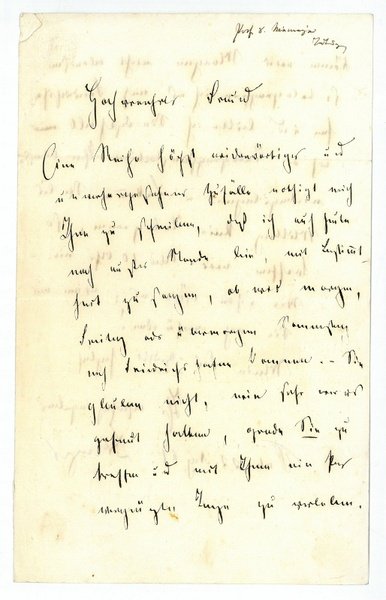 Prof v. Niemeyer
Hochverehrter Freund
Eine Reihe höchst widerwärtiger und
unvorhergesehener Zufälle nöthigt mich
Ihnen zu schreiben, daß ich auch heute
noch außer Stande bin, mit Bestimmt-
heit zu sagen, ob wir morgen,
Freitag oder übermorgen Sonnabend
nach Friedrichshafen kommen. — Sie
glauben nicht, wie sehr wir es
gehofft hatten, gerade Sie zu
treffen und mit Ihnen ein Paar
vergnügte Tage zu verleben.